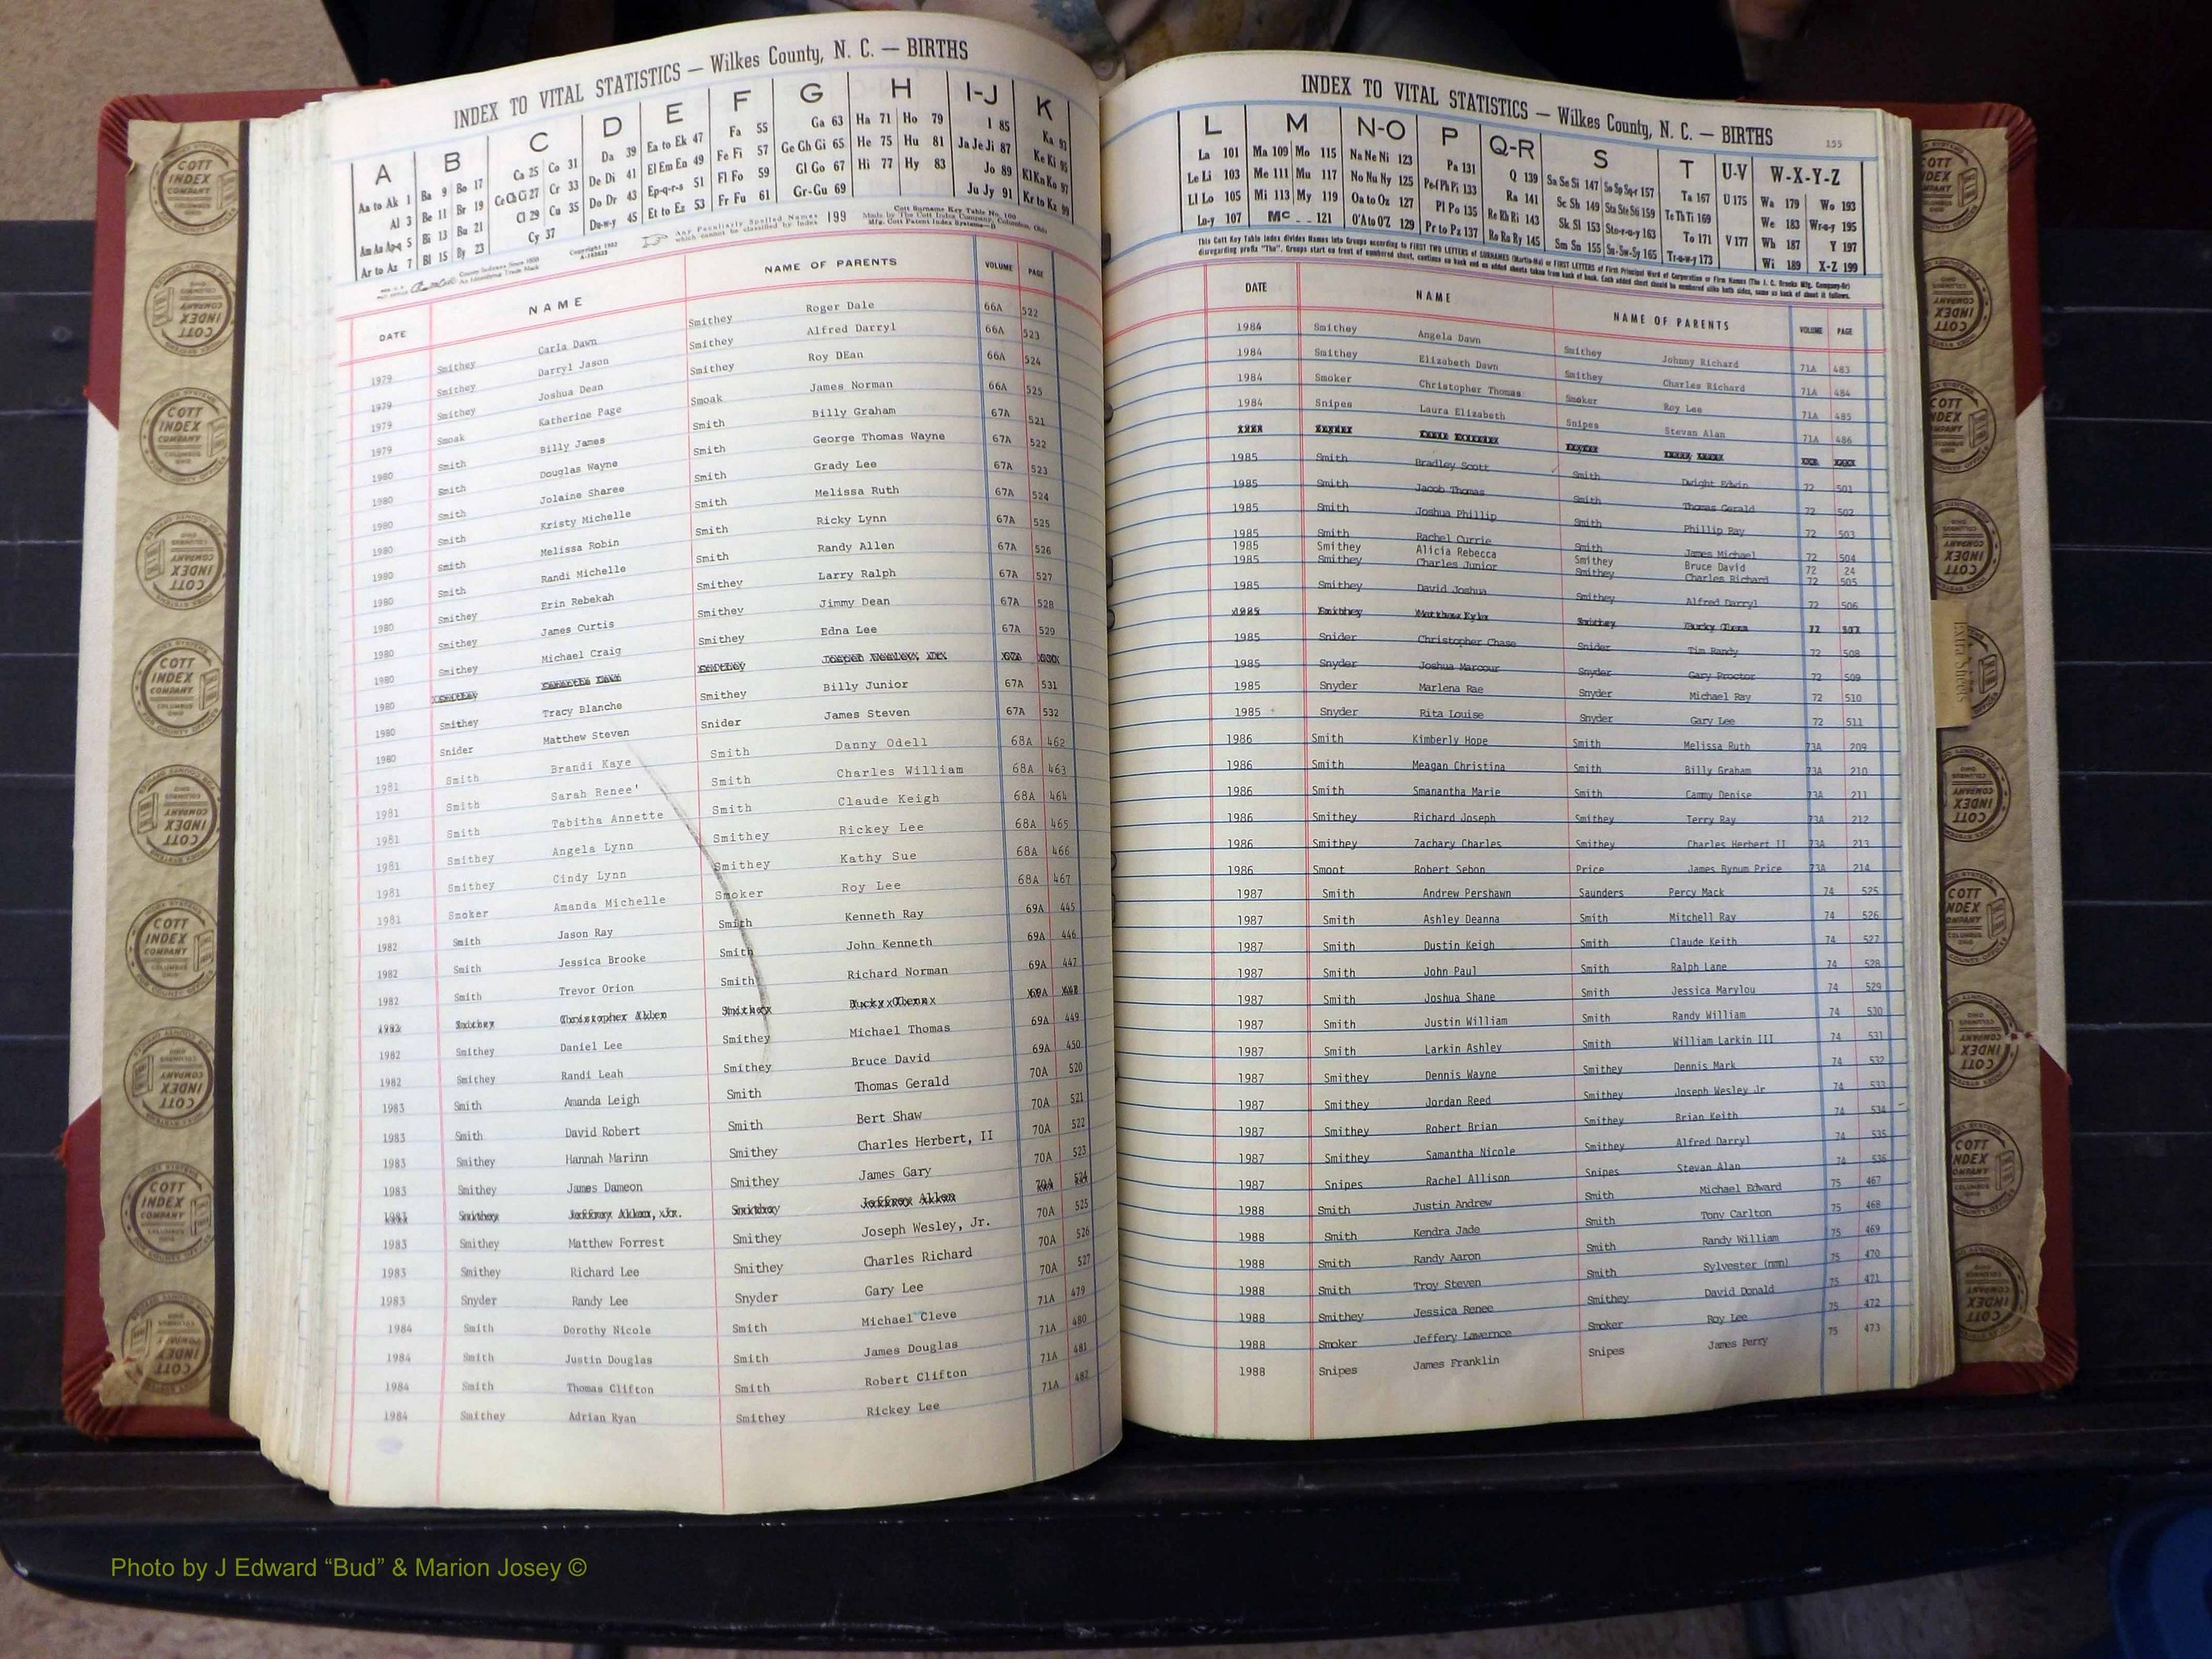 INDEX TO VITAL STATISTICS — Wilkes County, N. C. — BIRTHS
A B C D E F G H I-J K
Aa to Ak 1 Ba 9 Bo 17 Ca 25 Co 31 Da 39 Ea to Ek 47 Fa 55 Ga 63 Ha 71 Ho 79 I 85 Ka 93
Al 3 Be 11 Br 19 Ce Ch Ci 27 Cr 33 De Di 41 El Em En 49 Fe Fi 57 Ge Gh Gi 65 He 75 Hu 81 Ja Je Ji 87 Ke Ki 95
Am An Ap-q 5 Bi 13 Bu 21 Cl 29 Cu 35 Do Dr 43 Ep-q-r-s 51 Fl Fo 59 Gl Go 67 Hi 77 Hy 83 Jo 89 Kl Kn Ko 97
Ar to Az 7 Bl 15 By 23 Cy 37 Du-w-y 45 Et to Ez 53 Fr Fu 61 Gr-Gu 69 Ju Jy 91 Kr to Kz 99
Any Peculiarly Spelled Names which cannot be classified by Index 199
DATE NAME NAME OF PARENTS VOLUME PAGE
1979 Smithey Carla Dawn Smithey Roger Dale 66A 522
1979 Smithey Darryl Jason Smithey Alfred Darryl 66A 523
1979 Smithey Joshua Dean Smithey Roy DEan 66A 524
1979 Smoak Katherine Page Smoak James Norman 66A 525
1980 Smith Billy James Smith Billy Graham 67A 521
1980 Smith Douglas Wayne Smith George Thomas Wayne 67A 522
1980 Smith Jolaine Sharee Smith Grady Lee 67A 523
1980 Smith Kristy Michelle Smith Melissa Ruth 67A 524
1980 Smith Melissa Robin Smith Ricky Lynn 67A 525
1980 Smith Randi Michelle Smith Randy Allen 67A 526
1980 Smithey Erin Rebekah Smithey Larry Ralph 67A 527
1980 Smithey James Curtis Smithey Jimmy Dean 67A 528
1980 Smithey Michael Craig Smithey Edna Lee 67A 529
1980 Smithey Tracy Blanche Smithey Billy Junior 67A 531
1980 Snider Matthew Steven Snider James Steven 67A 532
1981 Smith Brandi Kaye Smith Danny Odell 68A 462
1981 Smith Sarah Renee' Smith Charles William 68A 463
1981 Smith Tabitha Annette Smith Claude Keigh 68A 464
1981 Smithey Angela Lynn Smithey Rickey Lee 68A 465
1981 Smithey Cindy Lynn Smithey Kathy Sue 68A 466
1981 Smoker Amanda Michelle Smoker Roy Lee 68A 467
1982 Smith Jason Ray Smith Kenneth Ray 69A 445
1982 Smith Jessica Brooke Smith John Kenneth 69A 446
1982 Smith Trevor Orion Smith Richard Norman 69A 447
1982 Smithey Daniel Lee Smithey Michael Thomas 69A 449
1982 Smithey Randi Leah Smithey Bruce David 69A 450
1983 Smith Amanda Leigh Smith Thomas Gerald 70A 520
1983 Smith David Robert Smith Bert Shaw 70A 521
1983 Smithey Hannah Marinn Smithey Charles Herbert, II 70A 522
1983 Smithey James Dameon Smithey James Gary 70A 523
1983 Smithey Matthew Forrest Smithey Joseph Wesley, Jr. 70A 525
1983 Smithey Richard Lee Smithey Charles Richard 70A 526
1983 Snyder Randy Lee Snyder Gary Lee 70A 527
1984 Smith Dorothy Nicole Smith Michael Cleve 71A 479
1984 Smith Justin Douglas Smith James Douglas 71A 480
1984 Smith Thomas Clifton Smith Robert Clifton 71A 481
1984 Smithey Adrian Ryan Smithey Rickey Lee 71A 482
INDEX TO VITAL STATISTICS — Wilkes County, N. C. — BIRTHS 155
L M N-O P Q-R S T U-V W-X-Y-Z
La 101 Ma 109 Mo 115 Na Ne Ni 123 Pa 131 Q 139 Sa Se Si 147 So Sp Sq-r 157 Ta 167 U 175 Wa 179 Wo 193
Le Li 103 Me 111 Mu 117 No Nu Ny 125 Pe-f Ph Pi 133 Ra 141 Sc Sh 149 Sta Ste Sti 159 Te Th Ti 169 We 183 Wr-u-y 195
Ll Lo 105 Mi 113 My 119 Oa to Oz 127 Pl Po 135 Re Rh Ri 143 Sk Sl 153 Sto-r-u-y 163 To 171 V 177 Wh 187 Y 197
Lu-y 107 Mc 121 O'A to O'Z 129 Pr to Pz 137 Ro Ru Ry 145 Sm Sn 155 Su-Sw-Sy 165 Tr-u-w-y 173 Wi 189 X-Z 199
DATE NAME NAME OF PARENTS VOLUME PAGE
1984 Smithey Angela Dawn Smithey Johnny Richard 71A 483
1984 Smithey Elizabeth Dawn Smithey Charles Richard 71A 484
1984 Smoker Christopher Thomas Smoker Roy Lee 71A 485
1984 Snipes Laura Elizabeth Snipes Stevan Alan 71A 486
1985 Smith Bradley Scott Smith Dwight Edwin 72 501
1985 Smith Jacob Thomas Smith Thomas Gerald 72 502
1985 Smith Joshua Phillip Smith Phillip Ray 72 503
1985 Smith Rachel Currie Smith James Michael 72 504
1985 Smithey Alicia Rebecca Smithey Bruce David 72 24
1985 Smithey Charles Junior Smithey Charles Richard 72 505
1985 Smithey David Joshua Smithey Alfred Darryl 72 506
1985 Snider Christopher Chase Snider Tim Randy 72 508
1985 Snyder Joshua Marcour Snyder Gary Proctor 72 509
1985 Snyder Marlena Rae Snyder Michael Ray 72 510
1985 Snyder Rita Louise Snyder Gary Lee 72 511
1986 Smith Kimberly Hope Smith Melissa Ruth 73A 209
1986 Smith Meagan Christina Smith Billy Graham 73A 210
1986 Smith Smanantha Marie Smith Cammy Denise 73A 211
1986 Smithey Richard Joseph Smithey Terry Ray 73A 212
1986 Smithey Zachary Charles Smithey Charles Herbert II 73A 213
1986 Smoot Robert Sebon Price James Bynum Price 73A 214
1987 Smith Andrew Pershawn Saunders Percy Mack 74 525
1987 Smith Ashley Deanna Smith Mitchell Ray 74 526
1987 Smith Dustin Keigh Smith Claude Keith 74 527
1987 Smith John Paul Smith Ralph Lane 74 528
1987 Smith Joshua Shane Smith Jessica Marylou 74 529
1987 Smith Justin William Smith Randy William 74 530
1987 Smith Larkin Ashley Smith William Larkin III 74 531
1987 Smithey Dennis Wayne Smithey Dennis Mark 74 532
1987 Smithey Jordan Reed Smithey Joseph Wesley Jr 74 533
1987 Smithey Robert Brian Smithey Brian Keith 74 534
1987 Smithey Samantha Nicole Smithey Alfred Darryl 74 535
1987 Snipes Rachel Allison Snipes Stevan Alan 74 536
1988 Smith Justin Andrew Smith Michael Edward 75 467
1988 Smith Kendra Jade Smith Tony Carlton 75 468
1988 Smith Randy Aaron Smith Randy William 75 469
1988 Smith Troy Steven Smith Sylvester (nmn) 75 470
1988 Smithey Jessica Renee Smithey David Donald 75 471
1988 Smoker Jeffery Lawernce Smoker Roy Lee 75 472
1988 Snipes James Franklin Snipes James Perry 75 473
Extra Sheets
COTT INDEX COMPANY COLUMBUS OHIO
Photo by J Edward “Bud” & Marion Josey ©